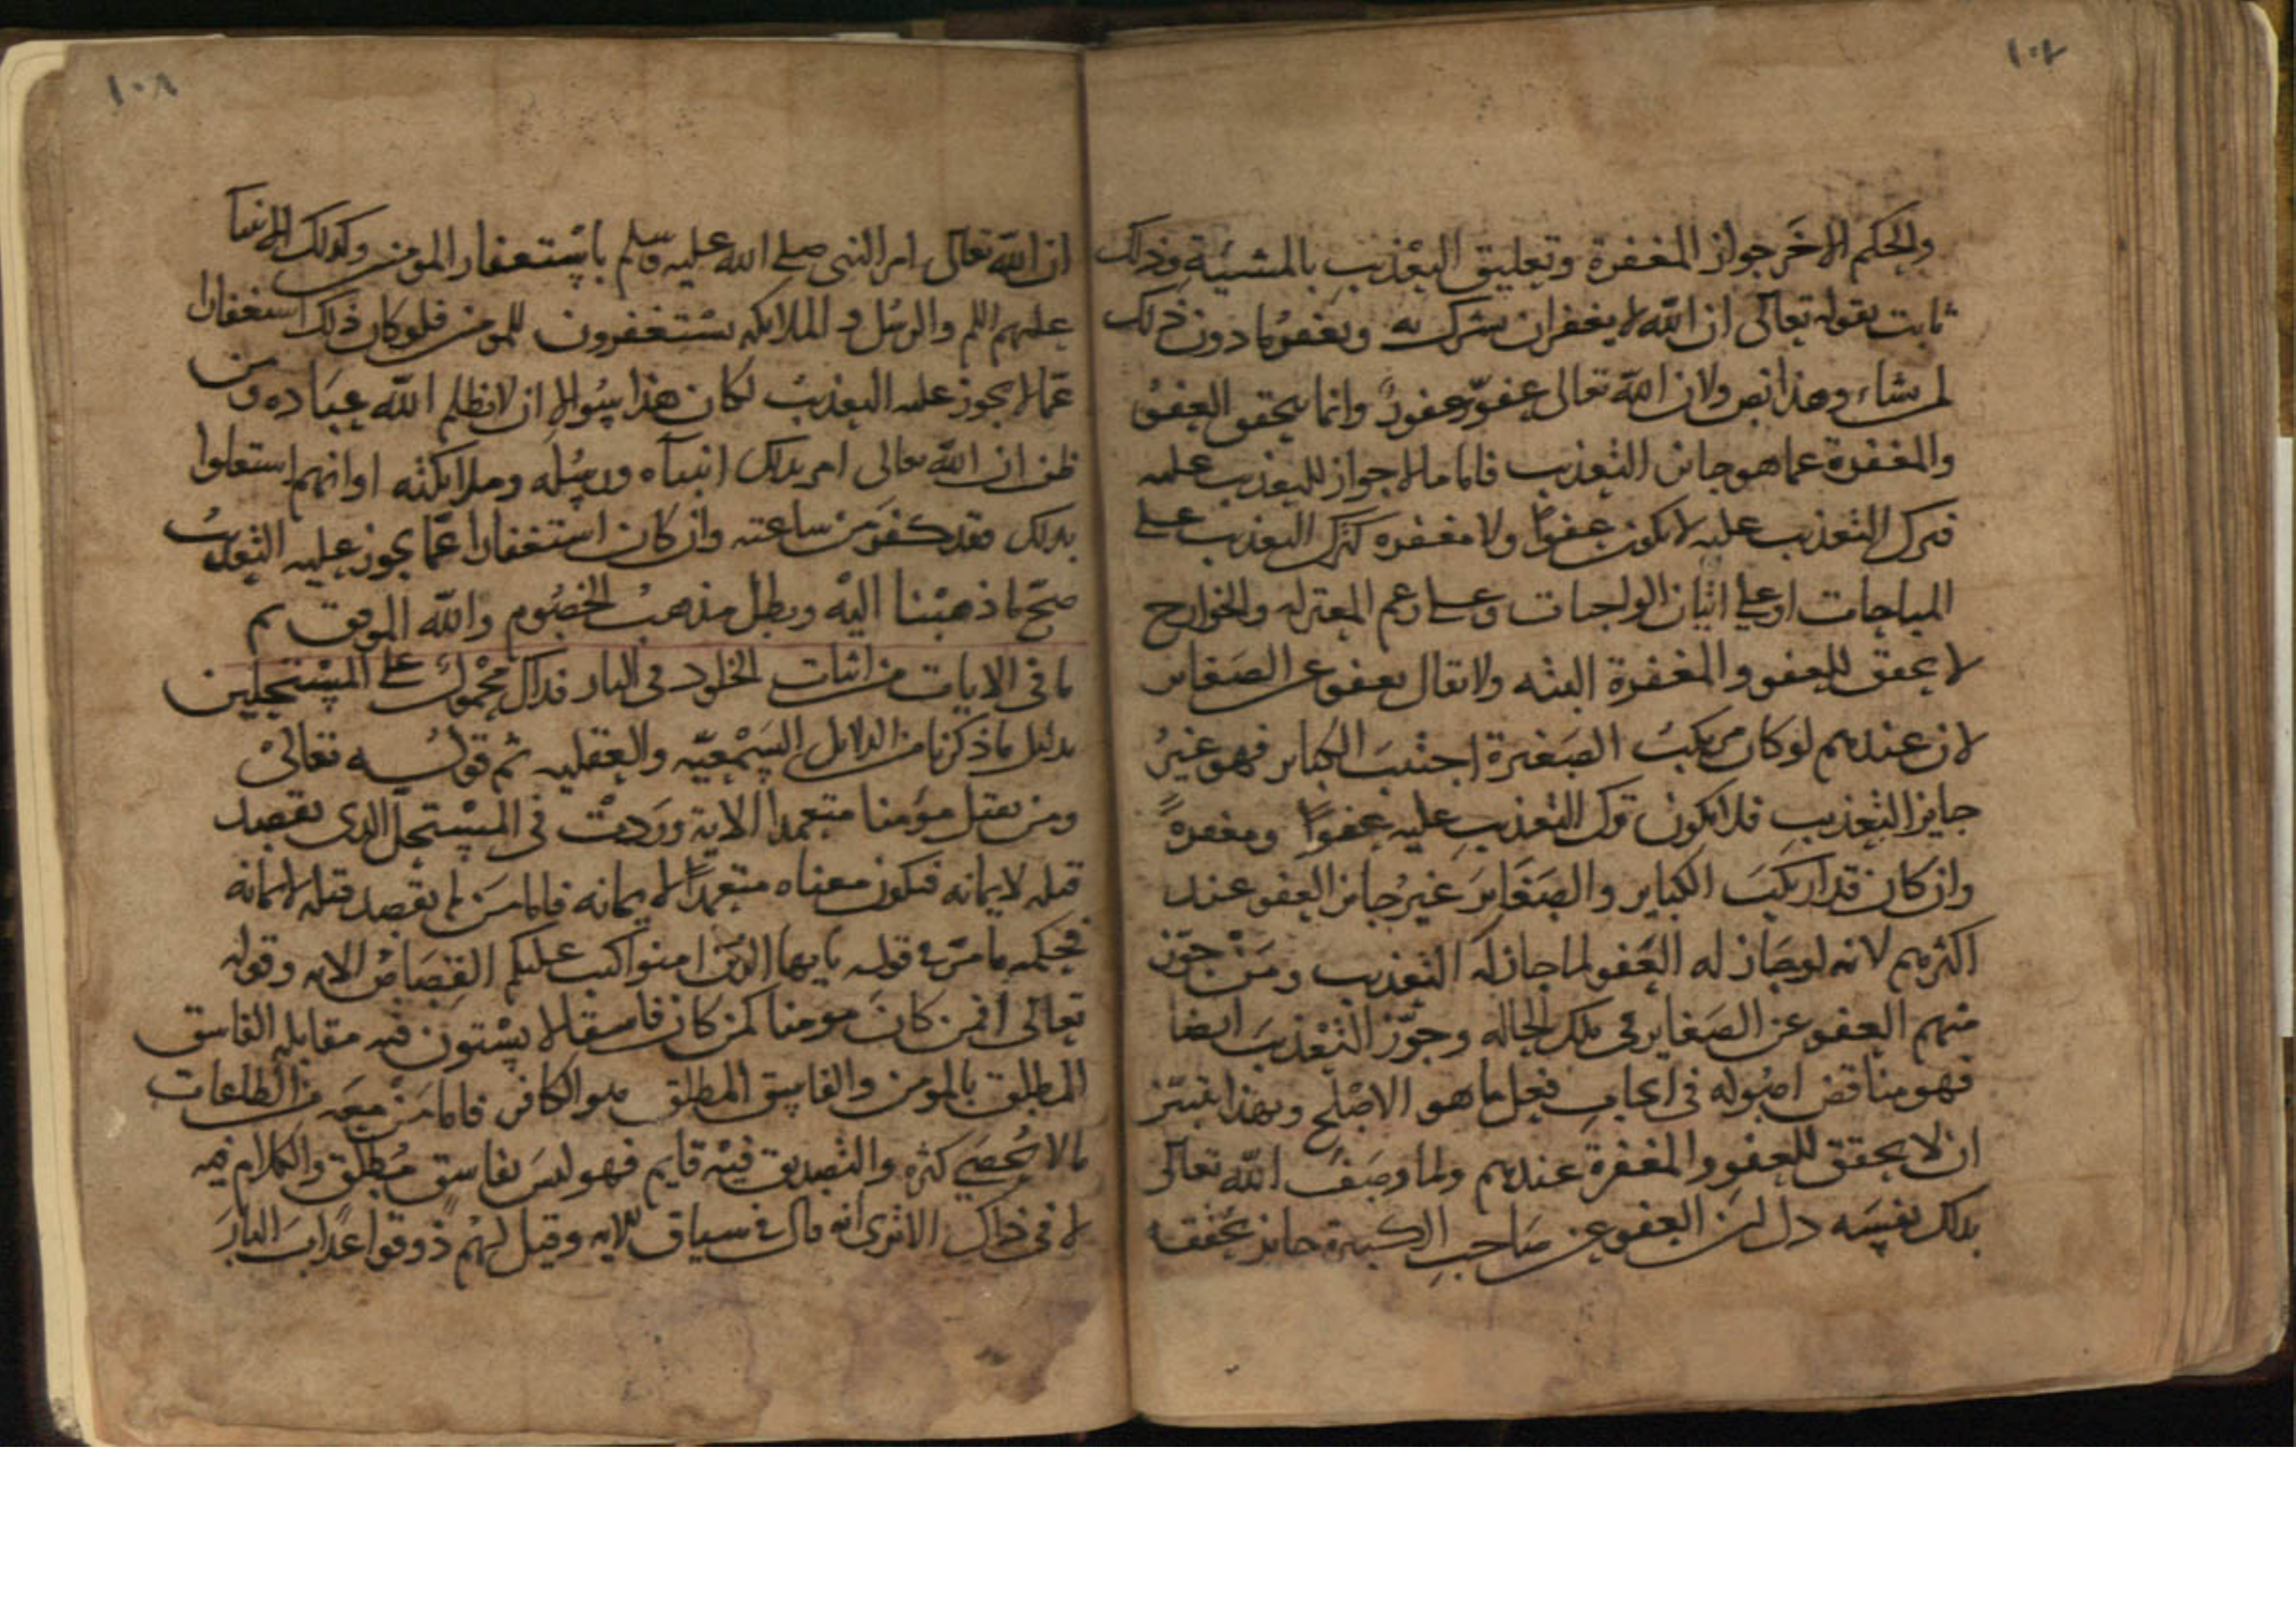 ١٠٧
والحكم الاخر جواز المغفرة وتعليق التعذيب بالمشيئة وذلك
ثابت بقوله تعالى ان الله لا يغفر ان يشرك به ويغفر ما دون ذلك
لمن يشاء وهذا نص ولان الله تعالى عفوّ غفورٌ وانما يتحقق العفوُ
والمغفرة عما هو جائز التعذيب فاما ما لا جواز للتعذيب عليه
فترك التعذيب عليه لا يكون عفواً ولا مغفره كترك التعذيب على
المباحات او على اتيان الواجبات وعلى زعم المعتزله والخوارج
لا تحقق للعفو والمغفرة البته ولا يقال يعفو عن الصغاير
لان عندهم لو كان مرتكبُ الصغيرة اجتنبَ الكباير فهو غيرُ
جايز التعذيب فلا يكون ترك التعذيب عليه عفواً ومغفرةً
وان كان قد ارتكبَ الكباير والصغايرَ غيرُ جايز العفو عند
اكثرهم لانه لو جاز له العَفو لما جاز له التعذيب ومَنْ جوّز
منهم العفو عن الصغاير في تلك الحاله وجوّز التعْذيبَ ايضا
فهو مناقض اصوله في ايجابِ فعل ما هو الاصْلح وبهذا يتبيّن
ان لا تحقق للعفو والمغفرة عندهم ولما وصَفَ الله تعالى
بذلك نفسَه دل انّ العفو عن صَاحب الكبيرة جايز تحققه
١٠٨
ان الله تعالى امر النبي صلى الله عليه وسلم باسْتغفار المومنين وكذلك الانبيا
عليهم السلم والرسُل والملايكه يسْتغفرون للمومنين فلو كان ذلك استغفارا
عمّا لا يجوز عليه التعذيبُ لكان هذا سُوالا ان لا يظلم الله عبَاده ومن
ظن ان الله تعالى امر بذلك انبياه ورسُله وملايكته او انهم استعلوا
بذلك فقد كفرَ من ساعته وان كان استغفارا عمّا يجوز عليه التعذيبُ
صحّ ما ذهبْنا اليْه وبطل مذهبُ الخصُوم والله الموفق ثم
ما في الايات من اثبات الخلود في النار فذاك محْمولٌ على المسْتحلين
بدليل ما ذكرنا من الدلايل السَمْعيّه والعقليه ثم قولُه تعالىْ
ومن يقتل مؤمنا متعمدا الاية وردتْ في المسْتحلّ الذي يقصد
قتله لايمانه فيكون معناه متعمداً لايمانه فاما مَن لم يقصد قتله لايمانه
فحكمه ما مرّ في قوله يايها الذين امنوا كتب عليكم القِصَاصُ الايه وقوله
تعالى افمن كانَ مومنا كمن كان فاسقا لا يسْتون فيه مقابله الفاسق
المطلق بالمومن والفاسق المطلق هو الكافر فاما مَنْ معَه من الطاعات
مالا يُحصَى كثره والتصديق فيْه قايم فهو ليسَ بفاسقٍ مُطلق والكلام فيه
لا في ذاك الا ترى انه قال في سياق الايه وقيل لهُم ذوقوا عذابَ النارَ